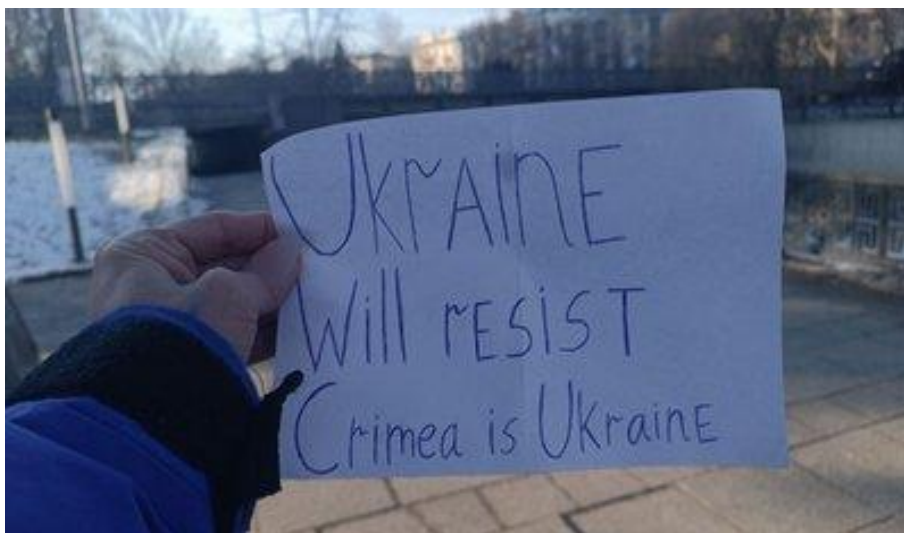 UkrAinE
Will rESiST
Crimea is UkrainE